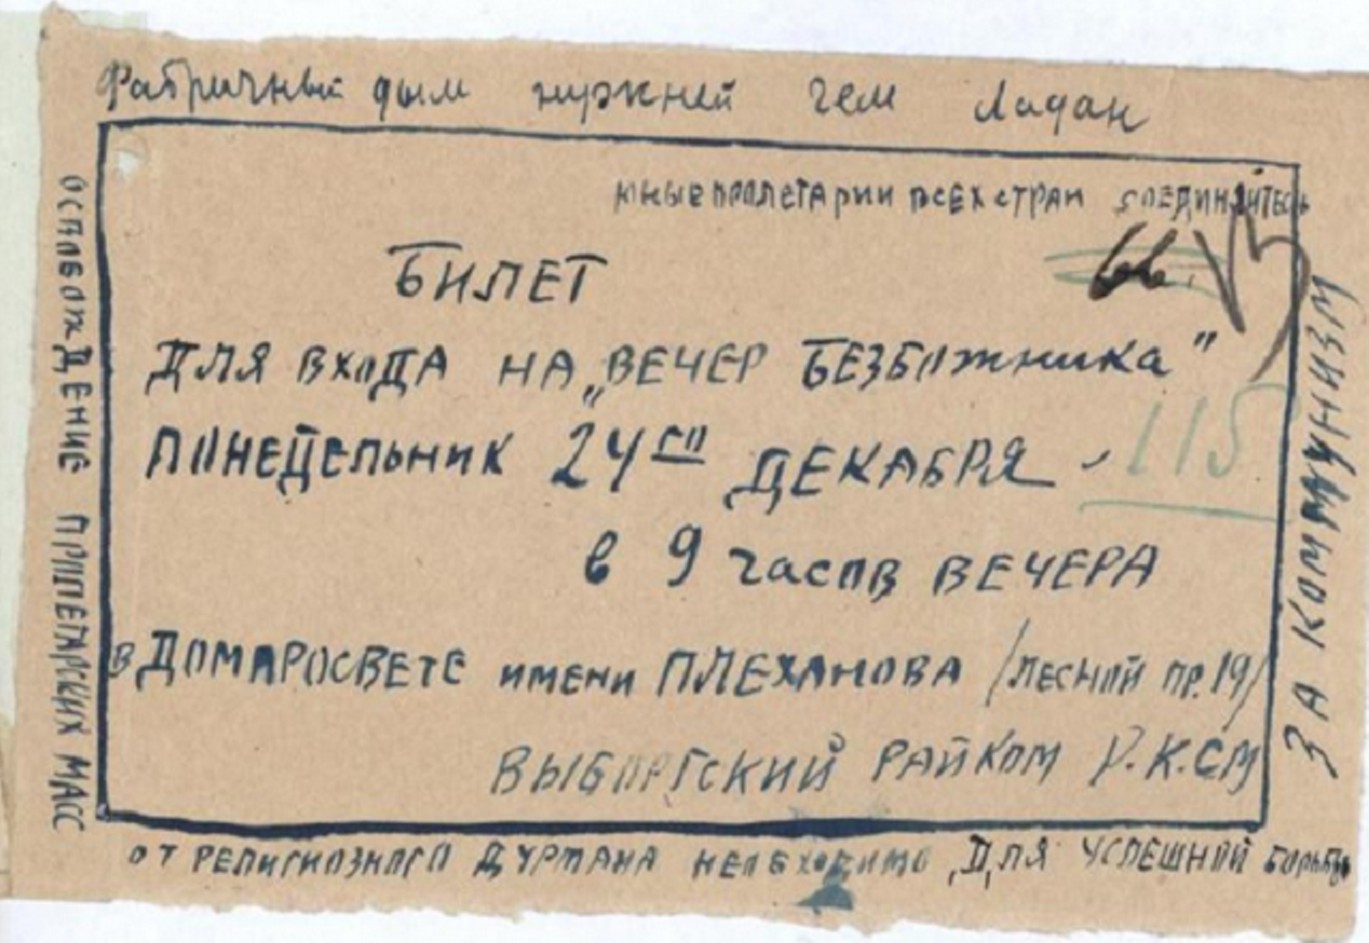 Фабричный дым нужней чем Ладан
юные пролетарии всех стран соединяйтесь
БИЛЕТ
ДЛЯ ВХОДА НА „ВЕЧЕР БЕЗБОЖНИКА"
ПОНЕДЕЛЬНИК 24го ДЕКАБРЯ -
115
в 9 часов ВЕЧЕРА
в ДОМПРОСВЕТЕ имени ПЛЕХАНОВА /ЛЕСНОЙ ПР. 19/
ВЫБОРГСКИЙ РАЙКОМ Р.К.СМ
ОСВОБОЖДЕНИЕ ПРОЛЕТАРСКИХ МАСС
ОТ РЕЛИГИОЗНОГО ДУРМАНА НЕОБХОДИМО ДЛЯ УСПЕШНОЙ БОРЬБЫ
ЗА КОММУНИЗМ